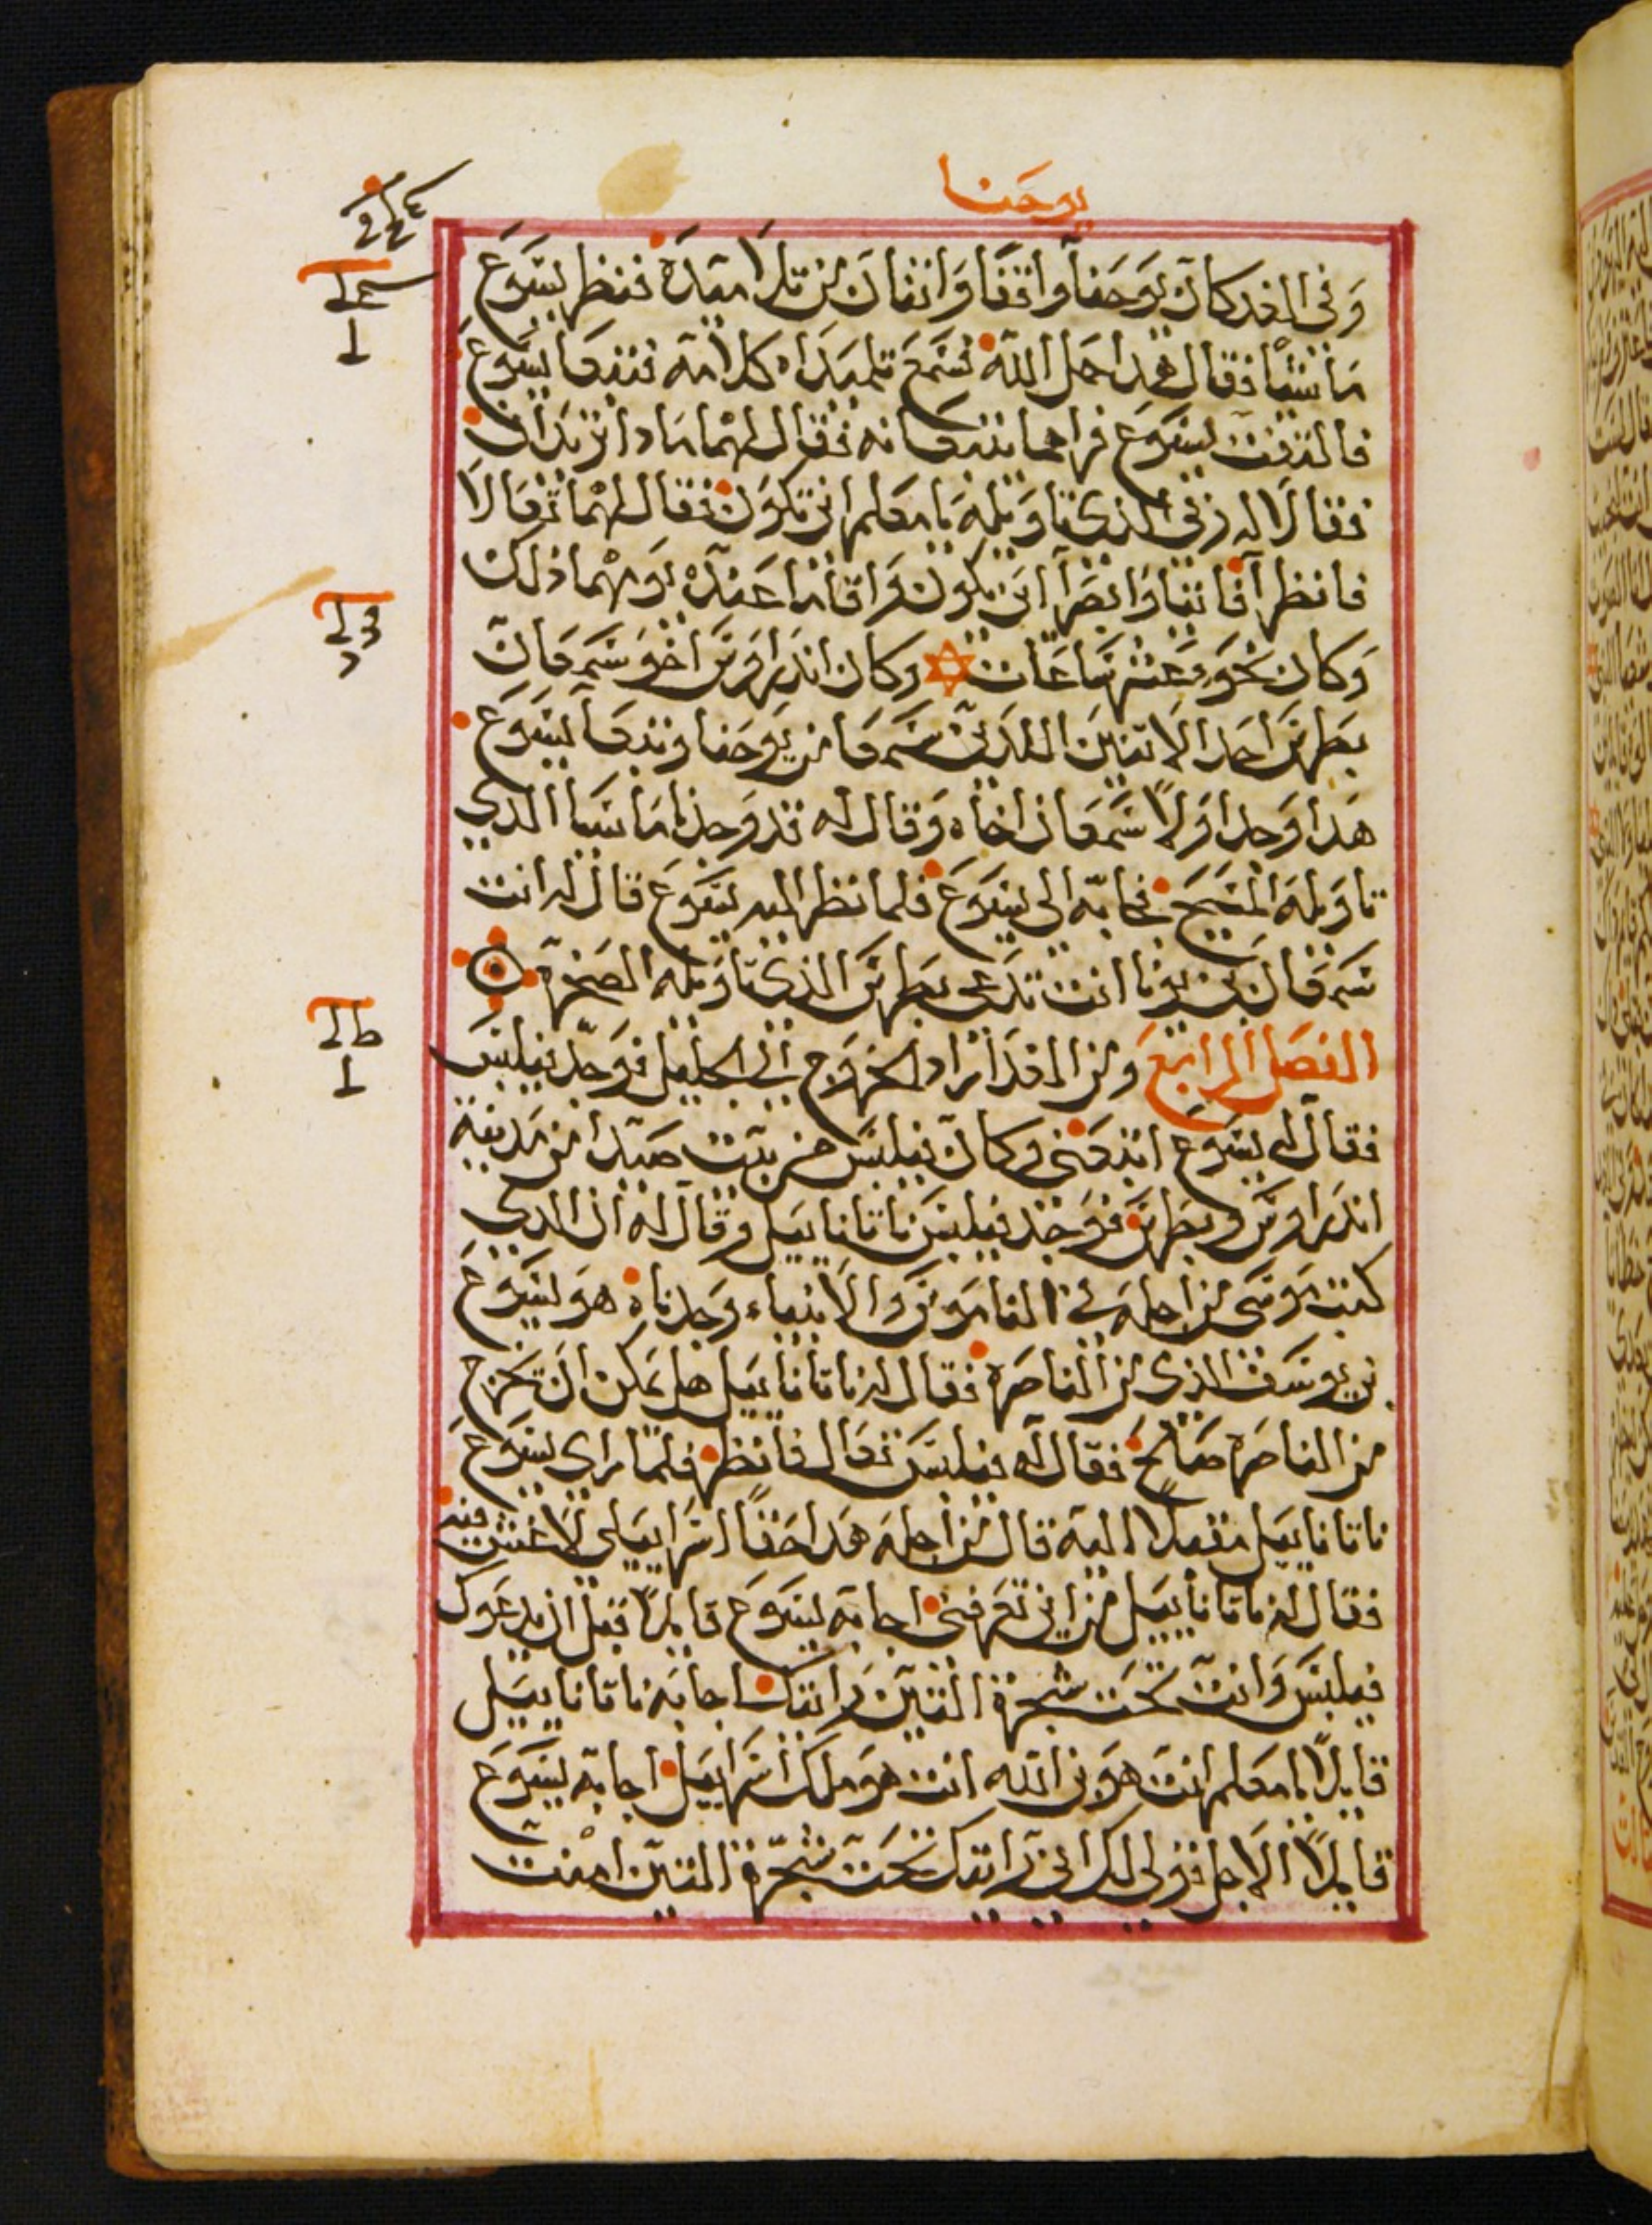 يوحنا
وَفي الغد كان يوَحَنا واقفًا وَاثنان من تلاميَدَه فنظر يسَوَع
مَاشيًا فقال هدا حمل الله فسَمعَ تلميَدَاه كلامه فتبعَا يسَوَع
فالتفت يسَوَع فراهما يتبعَانه فقال لهما مادا تريَدَان
فقالا له ربي الذي تاويله يا معَلم اين تكوَن فقال لهما تعَالا
فانظرا فاتيا وَابصَرا اين يكون وَاقاما عَندَه يوَمهما ذلك
وَكان نحوَ عَشر سَاعَات وكان اندراوَسَ اخو سَمعَان
بطرسَ احد الاتنين اللدين سَمعَا من يوَحَنا وتبعَا يسَوَع
هَدا وَجد اوَلا سَمعَان اخاه وَقال له قد وَجدنا مَاسَيا الدي
تاوَيله المسَيحَ فجا به الى يسَوَع فلما نظر اليه يسَوَع قال له انت
سَمعَان بن يونا انت تدعَى بطرسَ الذي تاوَيله الصخرة
الفصَل الرابع وَمن الغد اراد الخروَج الى الجليل فوَجد فيلبسَ
فقال له يسَوَع اتبعَني وكان فيلبسَ من بيت صَيدا من مدينة
اندراوسَ وبطرسَ فوَجد فيلبسَ ناتانايَيل وقال له ان الدي
كتب موَسَى من اجله في الناموَسَ وَالانبياء وَجدناه هو يسَوَع
بن يوسَف الذي من الناصَرة فقال له ناتانايَيل هل يمَكن ان تخرج
من الناصَرة صَالح فقال له فيلبسَ تعَال فانظر فلما راى يسَوَع
ناتانايَيل مقبلا اليه قال من اجله هَدا حَقا اسرايَيلي لا غش فيه
فقال له ناتانايَيل من اين تعَرفني اجابه يسَوَع قايلا قبل ان يدعَوك
فيلبسَ وَانت تحت شجرة التين رايتك اجابه ناتانايَيل
قايلا يا معَلم انت هوَ بن الله انت هوَ ملك اسرايَيل اجابه يسَوَع
قايلا الاجل قولي لك اني رايتك تحَت شجَرة التين امنت